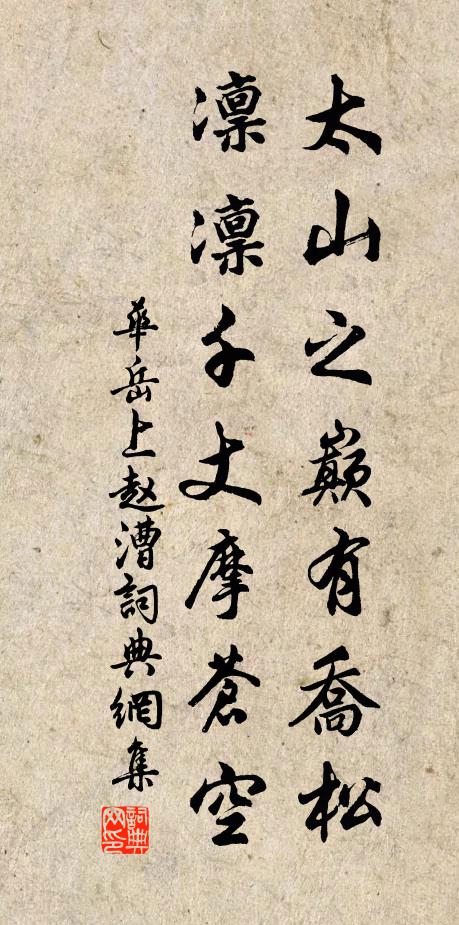 太山之巔有喬松
凜凜千丈摩蒼空
華岳上赵漕詞典網集
詞典
网印